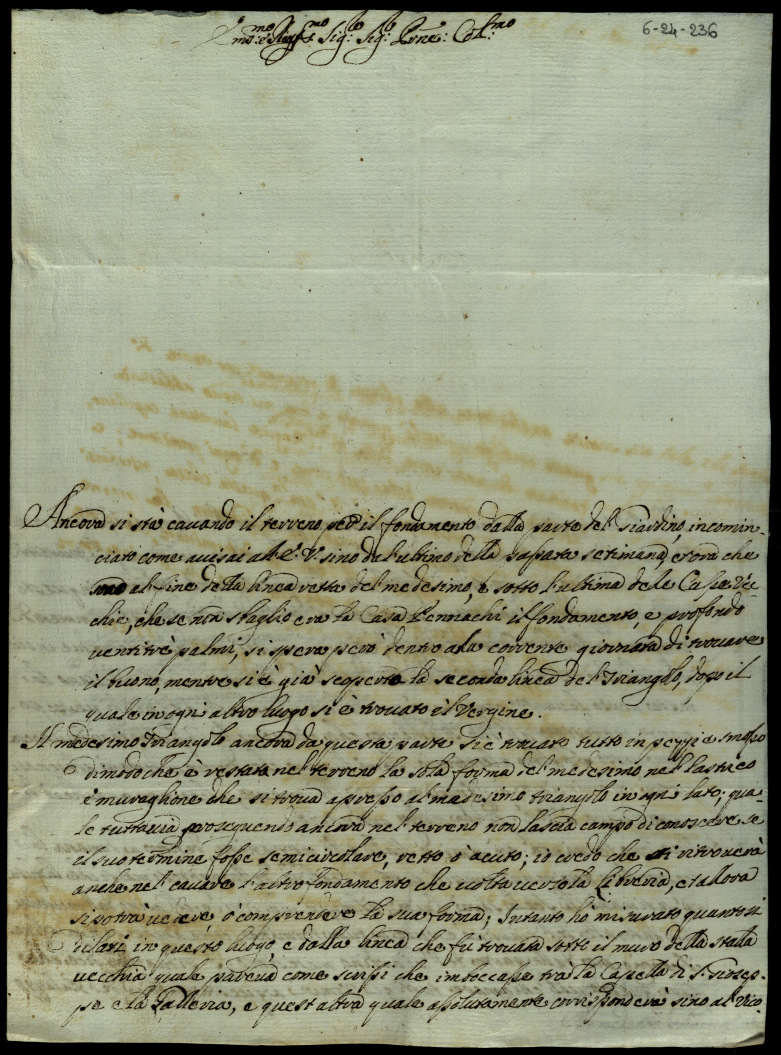 6-24-236
Sig: Sig: Prone: Col:mo
Ancora si stà cauando il terreno per il fondamento dalla parte del Giardino, incomin-
ciato come auisai all'E. V. sino dall'ultimo della passata settimana, et ora che
al fine della linea retta del medesimo, è sotto l'ultima dele Case Vec-
chie, che se non sbaglio era la Casa Pennachi il fondamento, e profondo
uentitrè palmi, si spera però dentro ala corrente giornata di trouare
il buono, mentre si è già scoperto la seconda linea del Triangolo, dopo il
quale in ogni altro luogo si è trouato il Vergine.
Il medesimo Triangolo ancora da questa parte si è trouato tutto in pezzi e
dimodoche è restata nel terreno la sola forma del medesimo nel lastrico
è muraglione che si troua apresso al medesimo triangolo in ogni lato; qua-
le tuttauia proseguendo ancora nel terreno non lascia campo di conoscere se
il suo termine fosse semicircolare, retto ò acuto; io credo che si ritrouerà
anche nel cauare l'altro fondamento che uolta uerso la Libreria, et allora
si potrà uedere, ò comprendere la sua forma; Intanto hò misurato quanto si
dilati in questo luogo, e dalla linea che fù trouata sotto il muro della stalla
uecchia quale pareua come scrissi che imboccasse trà la Capella di S. Giusep-
pe e la Galleria, e quest'altra quale assolutamente corrisponderà sino al Vico-